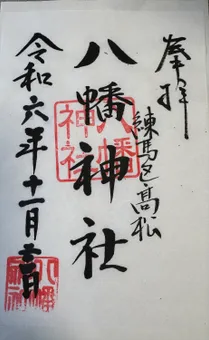 奉拝
練馬区高松
八幡神社
八幡
神社
令和六年十一月